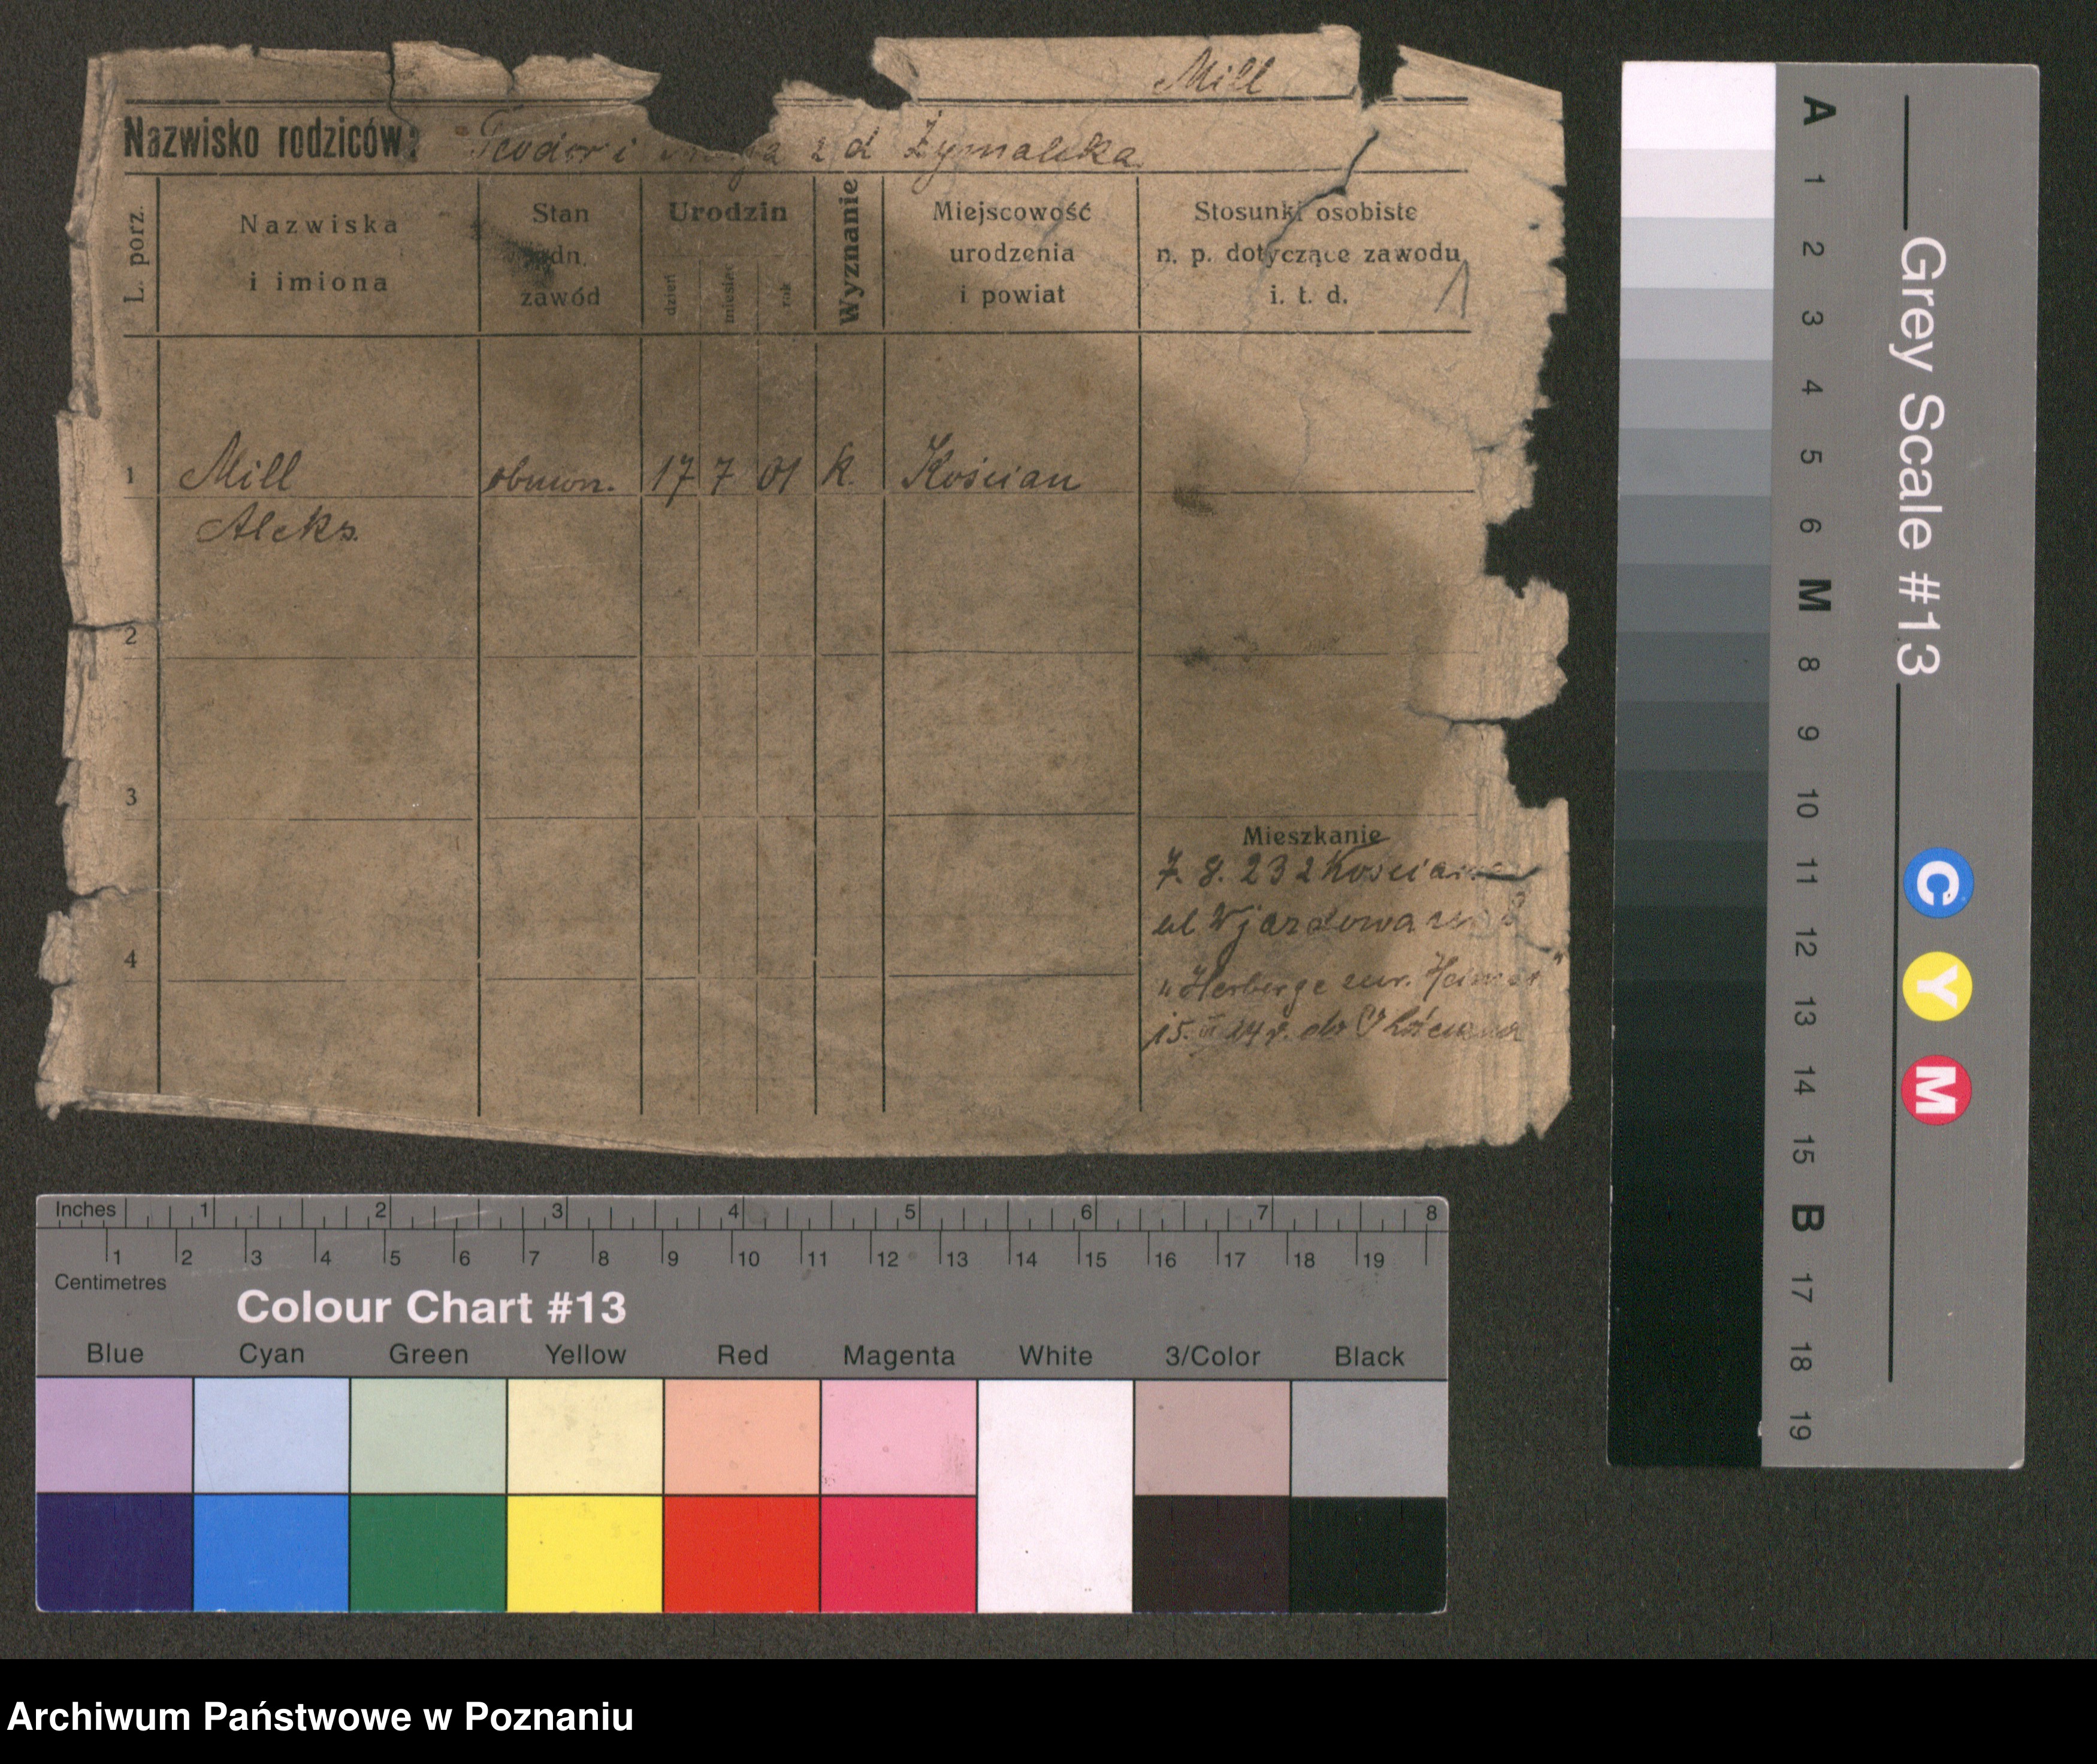 Mill
Nazwisko rodziców: Teodor i z d Żymalska
L. porz.
Nazwiska i imiona
Stan zawód
Urodzin
dzień
miesiąc
rok
Wyznanie
Miejscowość urodzenia i powiat
Stosunki osobiste n. p. dotyczące zawodu i. t. d.
1 Mill obuwn. 17 7 01 k. Kościan
Aleks.
2
3
Mieszkanie
7. 8. 232 Kościan
ul Wjazdowa
4
"Herberge zur. Heimat"
15. III 24 r. do Kościana
Inches 1 2 3 4 5 6 7 8
1 2 3 4 5 6 7 8 9 10 11 12 13 14 15 16 17 18 19
Centimetres
Colour Chart #13
Blue Cyan Green Yellow Red Magenta White 3/Color Black
Grey Scale #13
A 1 2 3 4 5 6 M 8 9 10 11 12 13 14 15 B 17 18 19
C Y M
Archiwum Państwowe w Poznaniu